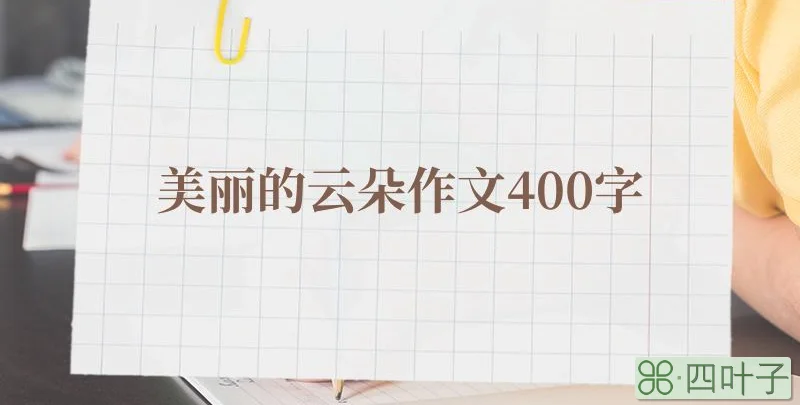 美丽的云朵作文400字
四叶子